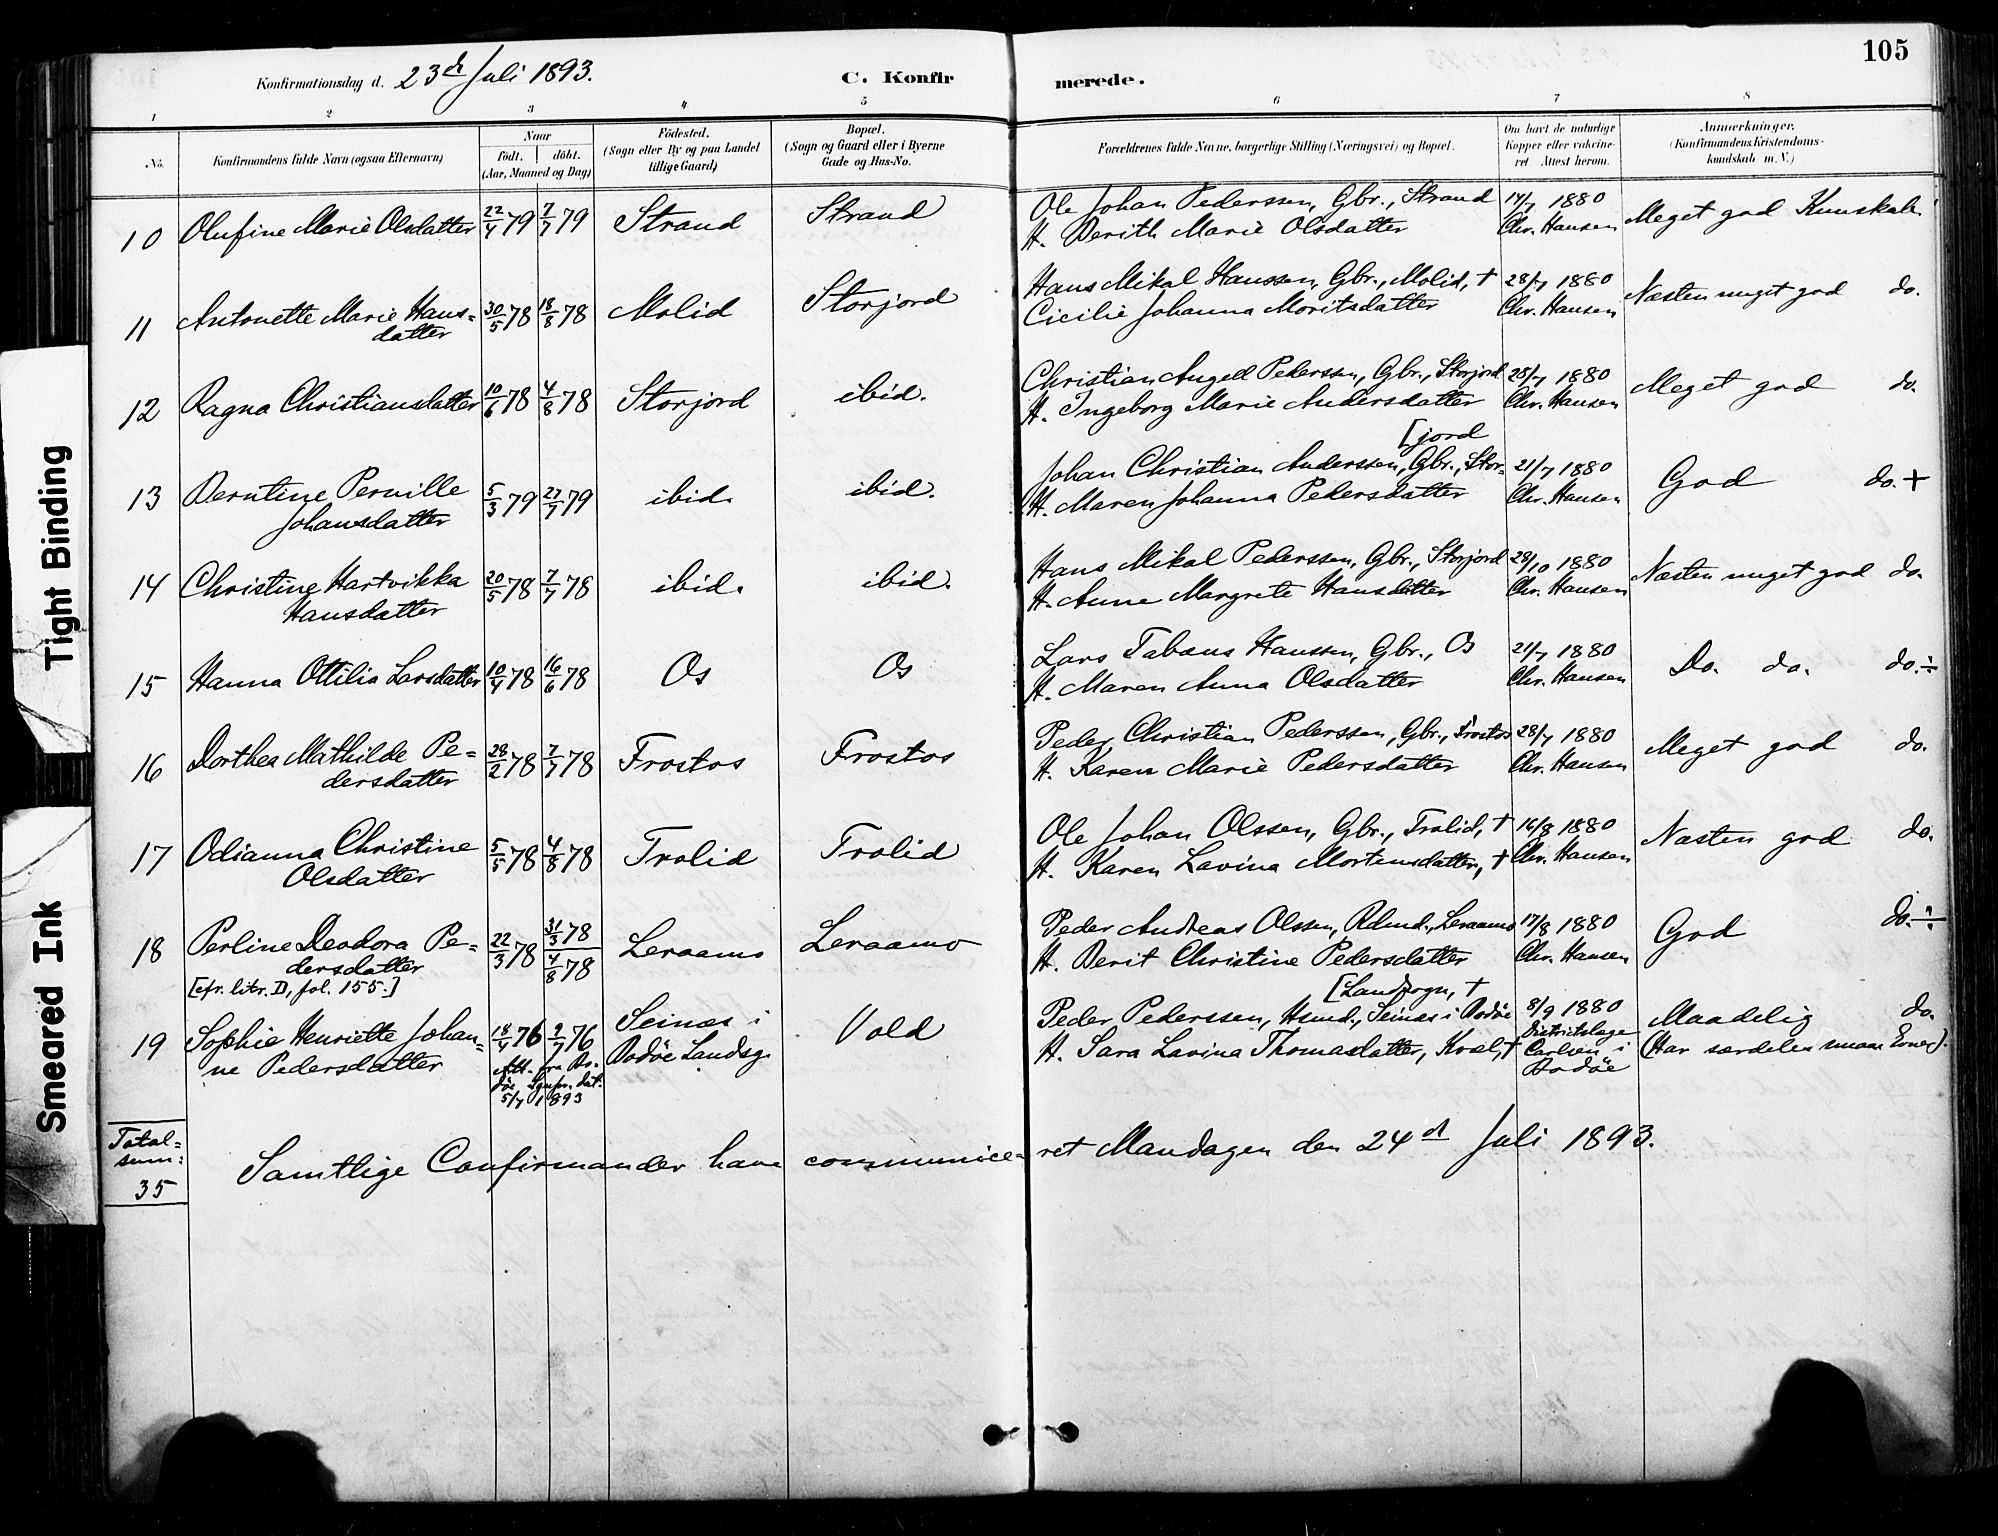 105
Konfirmationsdag d. 23de Juli 1893.
C. Konfirmerede.
1 2 3 4 5 6 7 8
No.
Konfirmandens fulde Navn (ogsaa Efternavn)
Naar
født. | döbt.
(Aar, Maaned og Dag)
Födested.
(Sogn eller By og paa Landet
tillige Gaard)
Bopæl.
(Sogn og Gaard eller i Byerne
Gade og Hus-No.
Forældrenes fulde Navne, borgerlige Stilling (Næringsvei) og Bopæl.
Om havt de naturlige
Kopper eller vakcine-
ret Attest herom.
Anmærkninger.
(Konfirmandens Kristendoms-
kundskab m. V.)
10 Olufine Marie Olsdatter 22/4 79 7/7 79 Strand Strand Ole Johan Pederssen, Gbr., Strand 14/7 1880 Meget god Kunskab
H. Berith Marie Olsdatter Chr. Hansen
11 Antonette Marie Hans= 30/5 78 18/8 78 Molid Storjord Hans Mikal Hanssen, Gbr., Molid, + 28/7 1880 Næsten meget god do.
datter Cicilie Johanna Moritsdatter Chr. Hansen
12 Ragna Christiansdatter 10/6 78 4/8 78 Storjord ibid. Christian Angell Pederssen, Gbr., Storjord 28/7 1880 Meget god do.
H. Ingeborg Marie Andersdatter Chr. Hansen
[jord
13 Berntine Pernille 5/3 79 27/7 79 ibid. ibid. Johan Christian Anderssen, Gbr., Stor- 21/7 1880 God do. +
Johansdatter H. Maren Johanna Pedersdatter Chr. Hansen
14 Christine Hartvikka 20/5 78 7/7 78 ibid. ibid. Hans Mikal Pederssen, Gbr., Storjord 28/10 1880 Næsten meget god do.
Hansdatter H. Anne Margrete Hansdatter Chr. Hansen
15 Hanna Ottilia Larsdatter 10/4 78 16/6 78 Os Os Lars Tabæus Hanssen, Gbr., Os 21/7 1880 Do. do. do. ÷
H. Maren Anna Olsdatter Chr. Hansen
16 Dorthea Mathilde Pe= 28/2 78 7/7 78 Frostos Frostos Peder Christian Pederssen, Gbr., Frostos 28/7 1880 Meget god do.
dersdatter H. Karen Marie Pedersdatter Chr. Hansen
17 Odianna Christine 5/5 78 4/8 78 Trolid Trolid Ole Johan Olssen, Gbr., Trolid, + 16/8 1880 Næsten god do.
Olsdatter H. Karen Lavina Mortensdatter, + Chr. Hansen
18 Perline Deodora Pe= 22/3 78 31/3 78 4/8 78 Leraamo Leraamo Peder Andreas Olssen, Rdmd., Leraamo 17/8 1880 God do. ÷
dersdatter H. Berit Christine Pedersdatter Chr. Hansen
[cfr. litr. D, fol. 155.]
[Landsogn, +
19 Sophie Henriette Johan= 18/4 76 9/7 76 Seines i Vold Peder Pederssen, Hsmd., Seines i Bodöe 8/9 1880 Maadelig do.
ne Pedersdatter Bodöe Landsg. H. Sara Lavina Thomasdatter, Kval, + Districtslæge (Har særdeles smaa Evner).
Att. fra Bo- Carlsen i
döe Sgnpr. dat. Bodöe
5/7 1893
Total=
sum:
35
Samtlige Confirmander have communiceret Mandagen den 24de Juli 1893.
Tight Binding
Smeared Ink